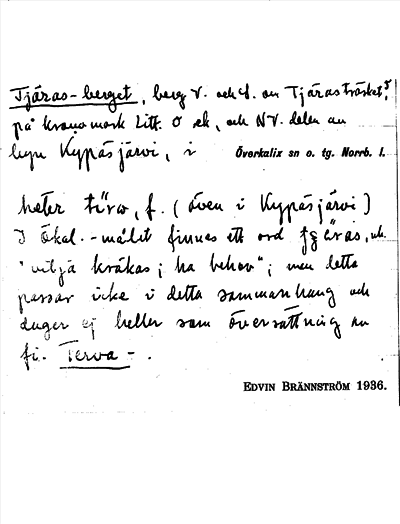 Tjäras-berget, berg V. och S. om Tjärasträsket,
på kronomark Litt. O ek, och NV. delen av
byn Kypäsjärvi, i Överkalix sn o. tg. Norrb. l.
heter tı̈rw, f. (även i Kypäsjärvi)
I Ökal.-målet finnes ett ord
"vilja kräkas; ha behov"; men detta
passar icke i detta sammanhang och
duger ej heller som översättning av
fi. Terva-.
EDVIN BRÄNNSTRÖM 1936.